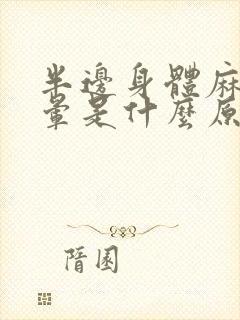 半邊身體麻
暈是什麼原
隋園